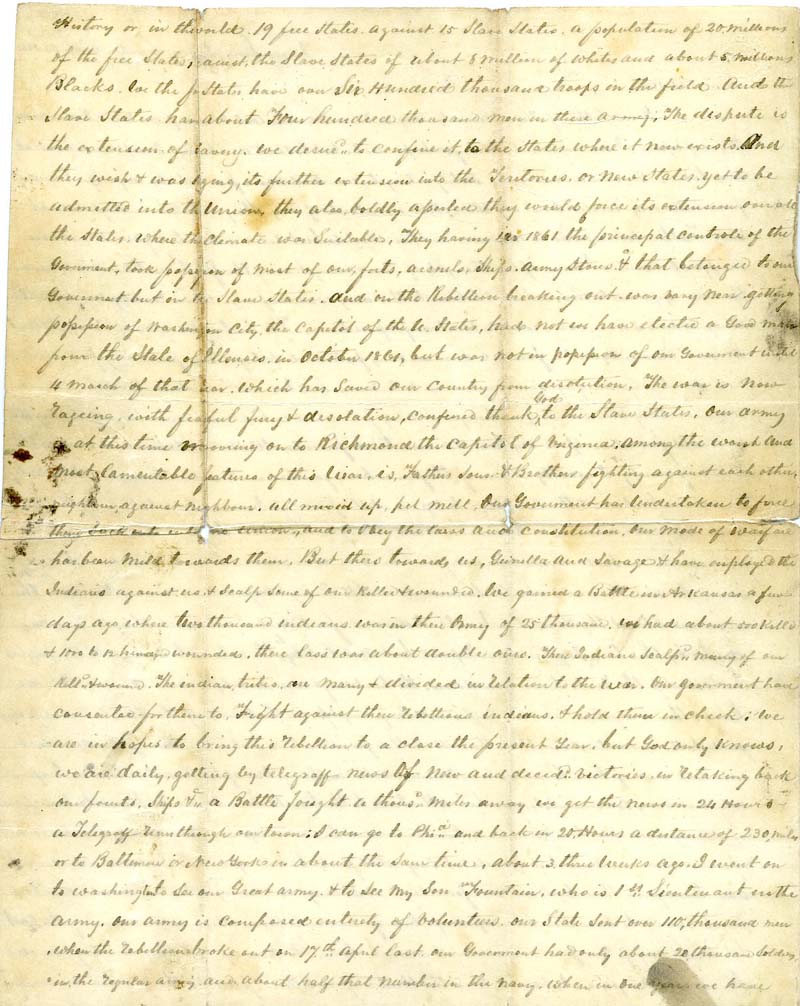 History or in the world. 19 free States. against 15 Slave States. a population of 20 millions
of the free States, against the Slave States of about 8 million of whites and about 5 millions
Blacks. We the States have over Six Hundred thousand troops in the field. And the
Slave States have about Four hundred thousand men in these army. The dispute is
the extension of Slavery. we desire to confine it, to the States where it now exists. And
they wish & was its further extension into the Teritories. or New States. yet to be
admitted into the Union, they also boldly asserted they would force its extension over all
the States. where the Climate was Suitable, They having in 1861 the principal controle of the
Goverment, took possession of most of our, forts, arsnels, Ships. Army Stores &c that belonged to our
Goverment. but in the Slave States. and on the Rebellion breaking out. was vary near getting
possession of Washington City, the Capitol of the U. States, had not we have elected a Good man
from the State of Illenois. in October 1860, but was not in possession of our Goverment until
4 March of that year. which has Saved our Country from desolution, The war is now
rageing. with fearful fury & desolation, confined thank God to the Slave States, our army
is at this time mooving on to Richmond the capitol of Virginia. among the worst and
most lamentable features of this War, is, Fathers Sons. & Brothers fighting against each other.
neighbour, against neighbour. all mixed up, pel mell. Our Goverment has undertaken to force
them back into the union, and to obey the laws and constitution. our mode of warfare
has been mild towards them. But thers towards us, Guirella and Savage & have employed the
Indians against us. & Scalp Some of our Killed & wounded. We gained a Battle in Arkansas a few
days ago, where two thousand indians was in their Army of 25 thousand. we had about 500 Killed
& 1000 to 12 hundred wounded. there loss was about double ours. These Indians Scalpd many of our
Killd & wound. The indian, tribes, are many & divided in relation to the war. Our Goverment have
consented for them to Fight against these rebellious indians, & hold them in check; We
are in hopes to bring this rebellion to a close the present year, but God only Knows,
we are daily, getting by telegraff news of new and decided victories. in retaking back
our forts, Ships &c a Battle fought a thousd miles away we get the news in 24 Hours
a Telegraff runs through our town; I can go to Phia and back in 20 Hours a distance of 230, miles
or to Baltimore or New York in about the same time, about 3, three Weeks ago. I went on
to washington to see our Great army. & to See My Son Fountain, who is 1st Lieutenant in the
army. our army is composed entirely of volunteers. our State Sent over 110, thousand men
when the rebellion broke out on 17th April last. our Goverment had only about 20 thousand Soldiers
in the regular army and about half that number in the navy. when in one year we have